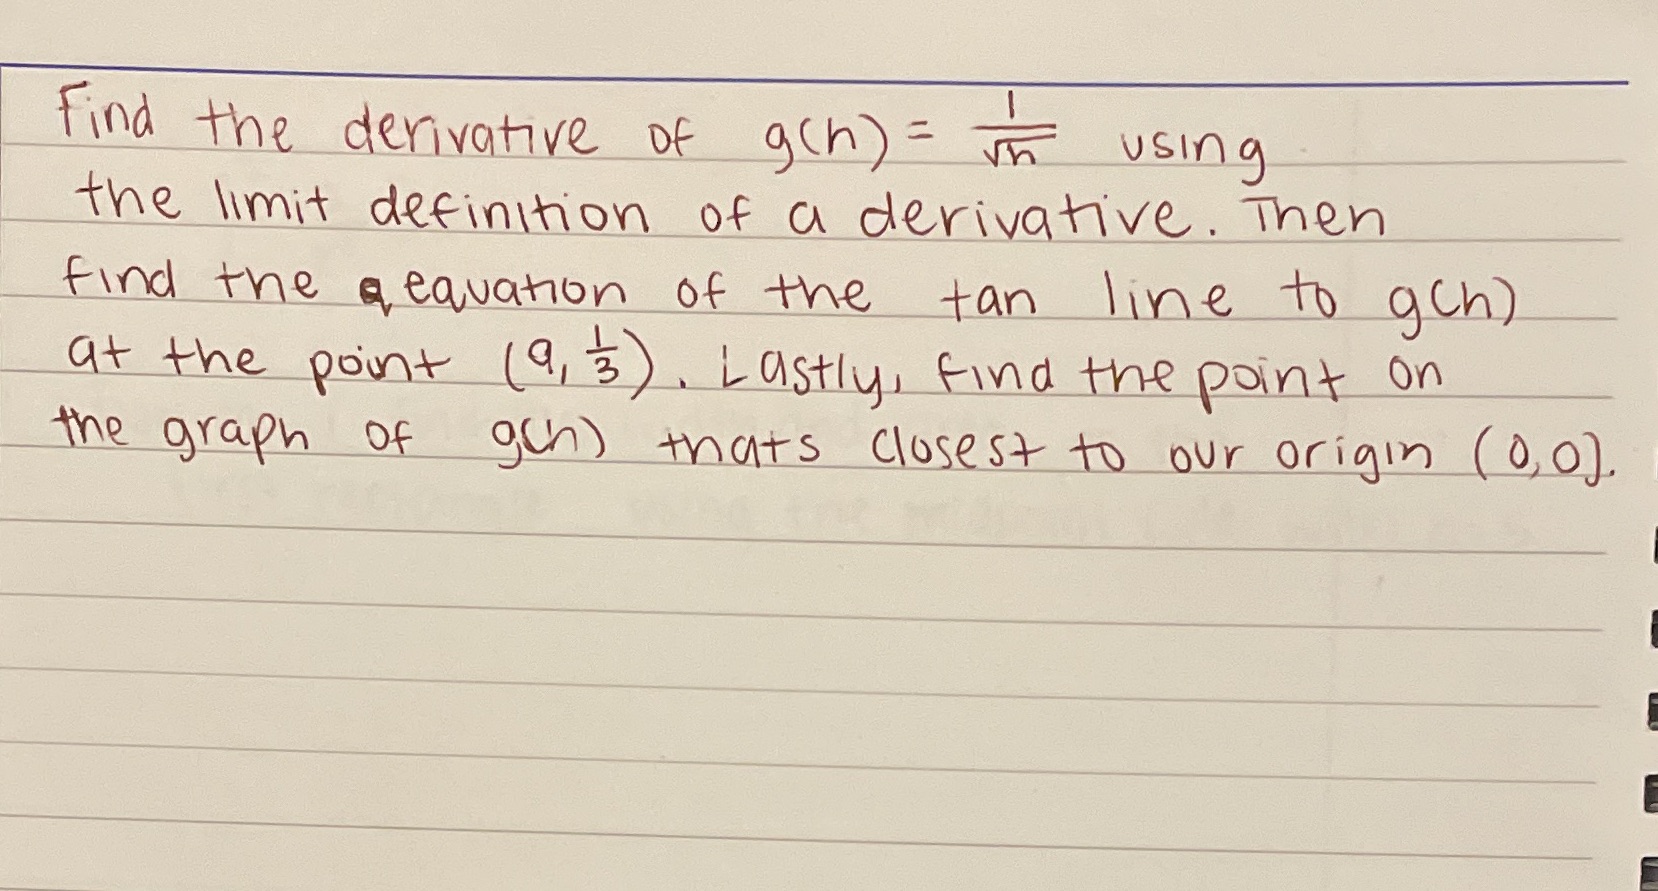 Find the derivative of g(h) = 1/√h using
the limit definition of a derivative. Then
find the equation of the tan line to g(h)
at the point (9, 1/3). Lastly, find the point on
the graph of g(h) thats closest to our origin (0,0).